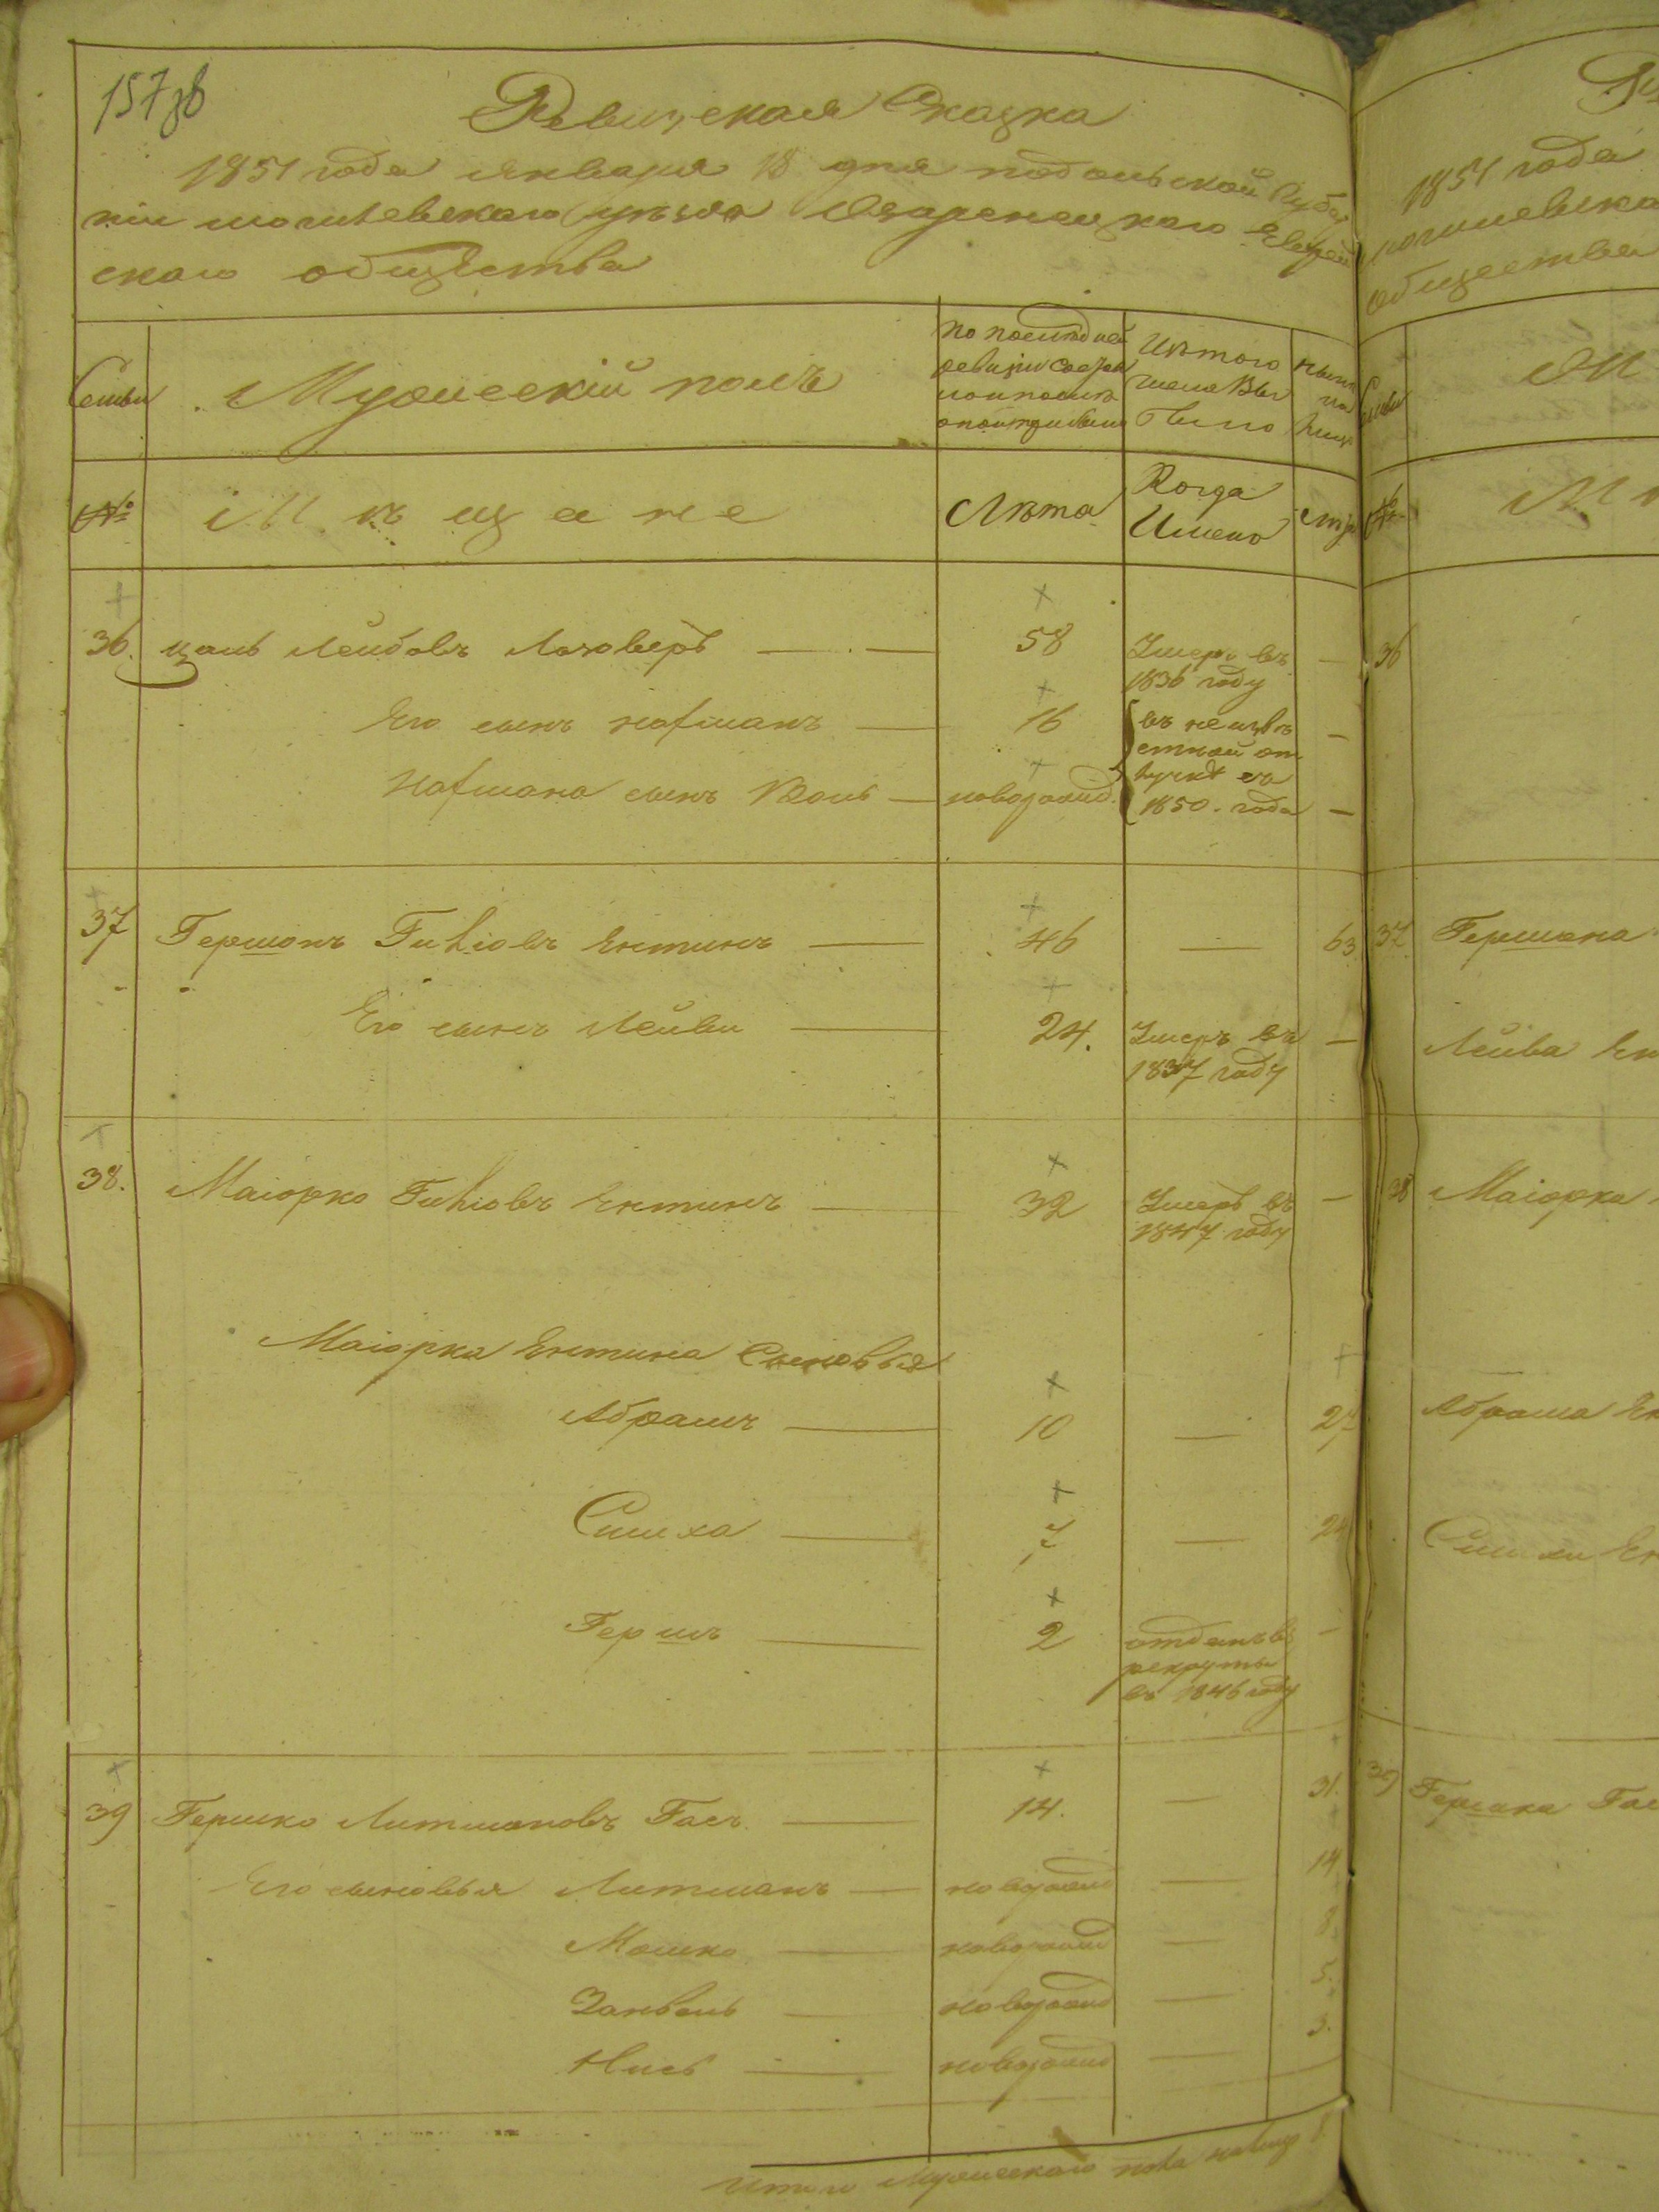 157зв
Ревизская Сказка
1851 года января 18 дня подольской Губер
ніи могилевскаго уѣзда Озаренецкаго Еврей
скаго общества
Семьи
Мужескій полъ
по последней
ревизіи состоя
Изъ того
числа Вы
было
нынѣ
на
лицо
№
Мѣщане
Лѣта
Когда
Именно
Лѣта
36. Лейбовъ Лоховеръ — 58 Умеръ въ —
1836 году
Его сынъ Нафманъ — 16 въ неизвѣ —
стной от
Нафмана сынъ Волъ — новорожд. лучкѣ съ
1850. года —
37 Гершонъ Гилiовъ Ентинъ — 46 — 63
Его сынъ Лейви — 24. Умеръ въ —
1837 году
38. Маіорко Гилiовъ Ентинъ — 32 Умеръ въ —
1847 году
Маіорка Ентина Сыновья
Абрамъ — 10 — 27
Симха — 7 — 24
Гершъ — 2 отданъ въ —
рекруты
въ 1846 году
39 Гершко Литмановъ Гасъ — 14. — 31.
Его сыновья Литманъ — новорожд — 14
Мошко — новорожд — 8.
Занвель — новорожд — 5.
Нисъ — новорожд — 3.
Итого Мужескаго пола налицо
1851 года
могилевска
общества
Семьи
М
№
М
36
37 Гершона
Лейва Ен
38 Маіорка
Абрама Ен
Симхи Ен
39 Гершка Гас